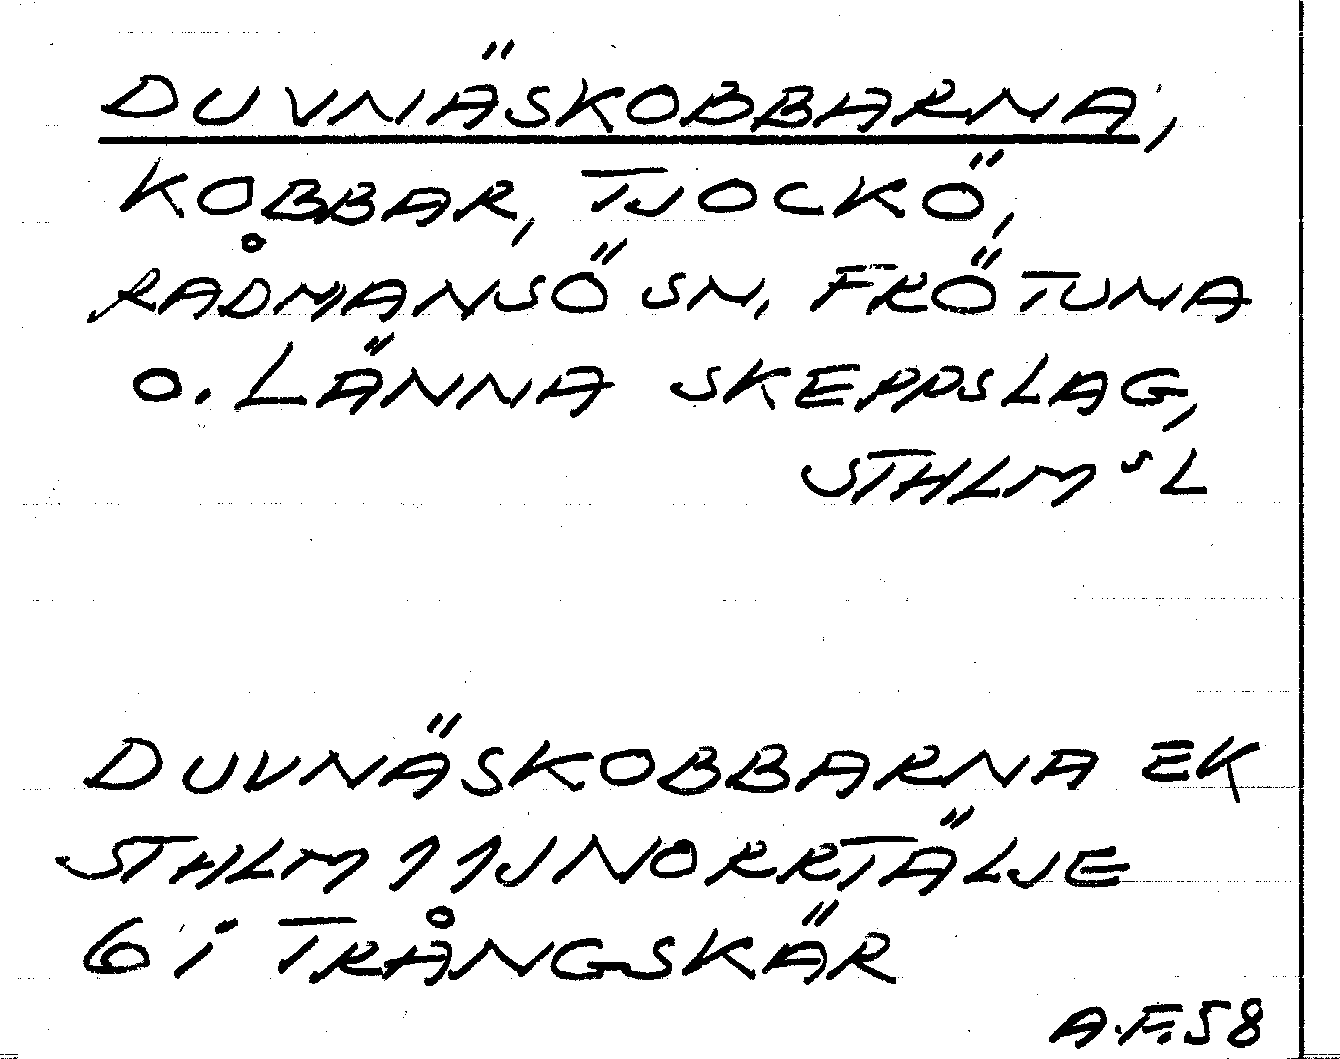 DUVNÄSKOBBARNA,
KOBBAR, TJOCKÖ,
RÅDMANSÖ SN, FRÖTUNA
O. LÄNNA SKEPPSLAG,
STHLMS L
DUVNÄSKOBBARNA EK
STHLM 11J NORRTÄLJE
6 i TRÅNGSKÄR
A.F. 58